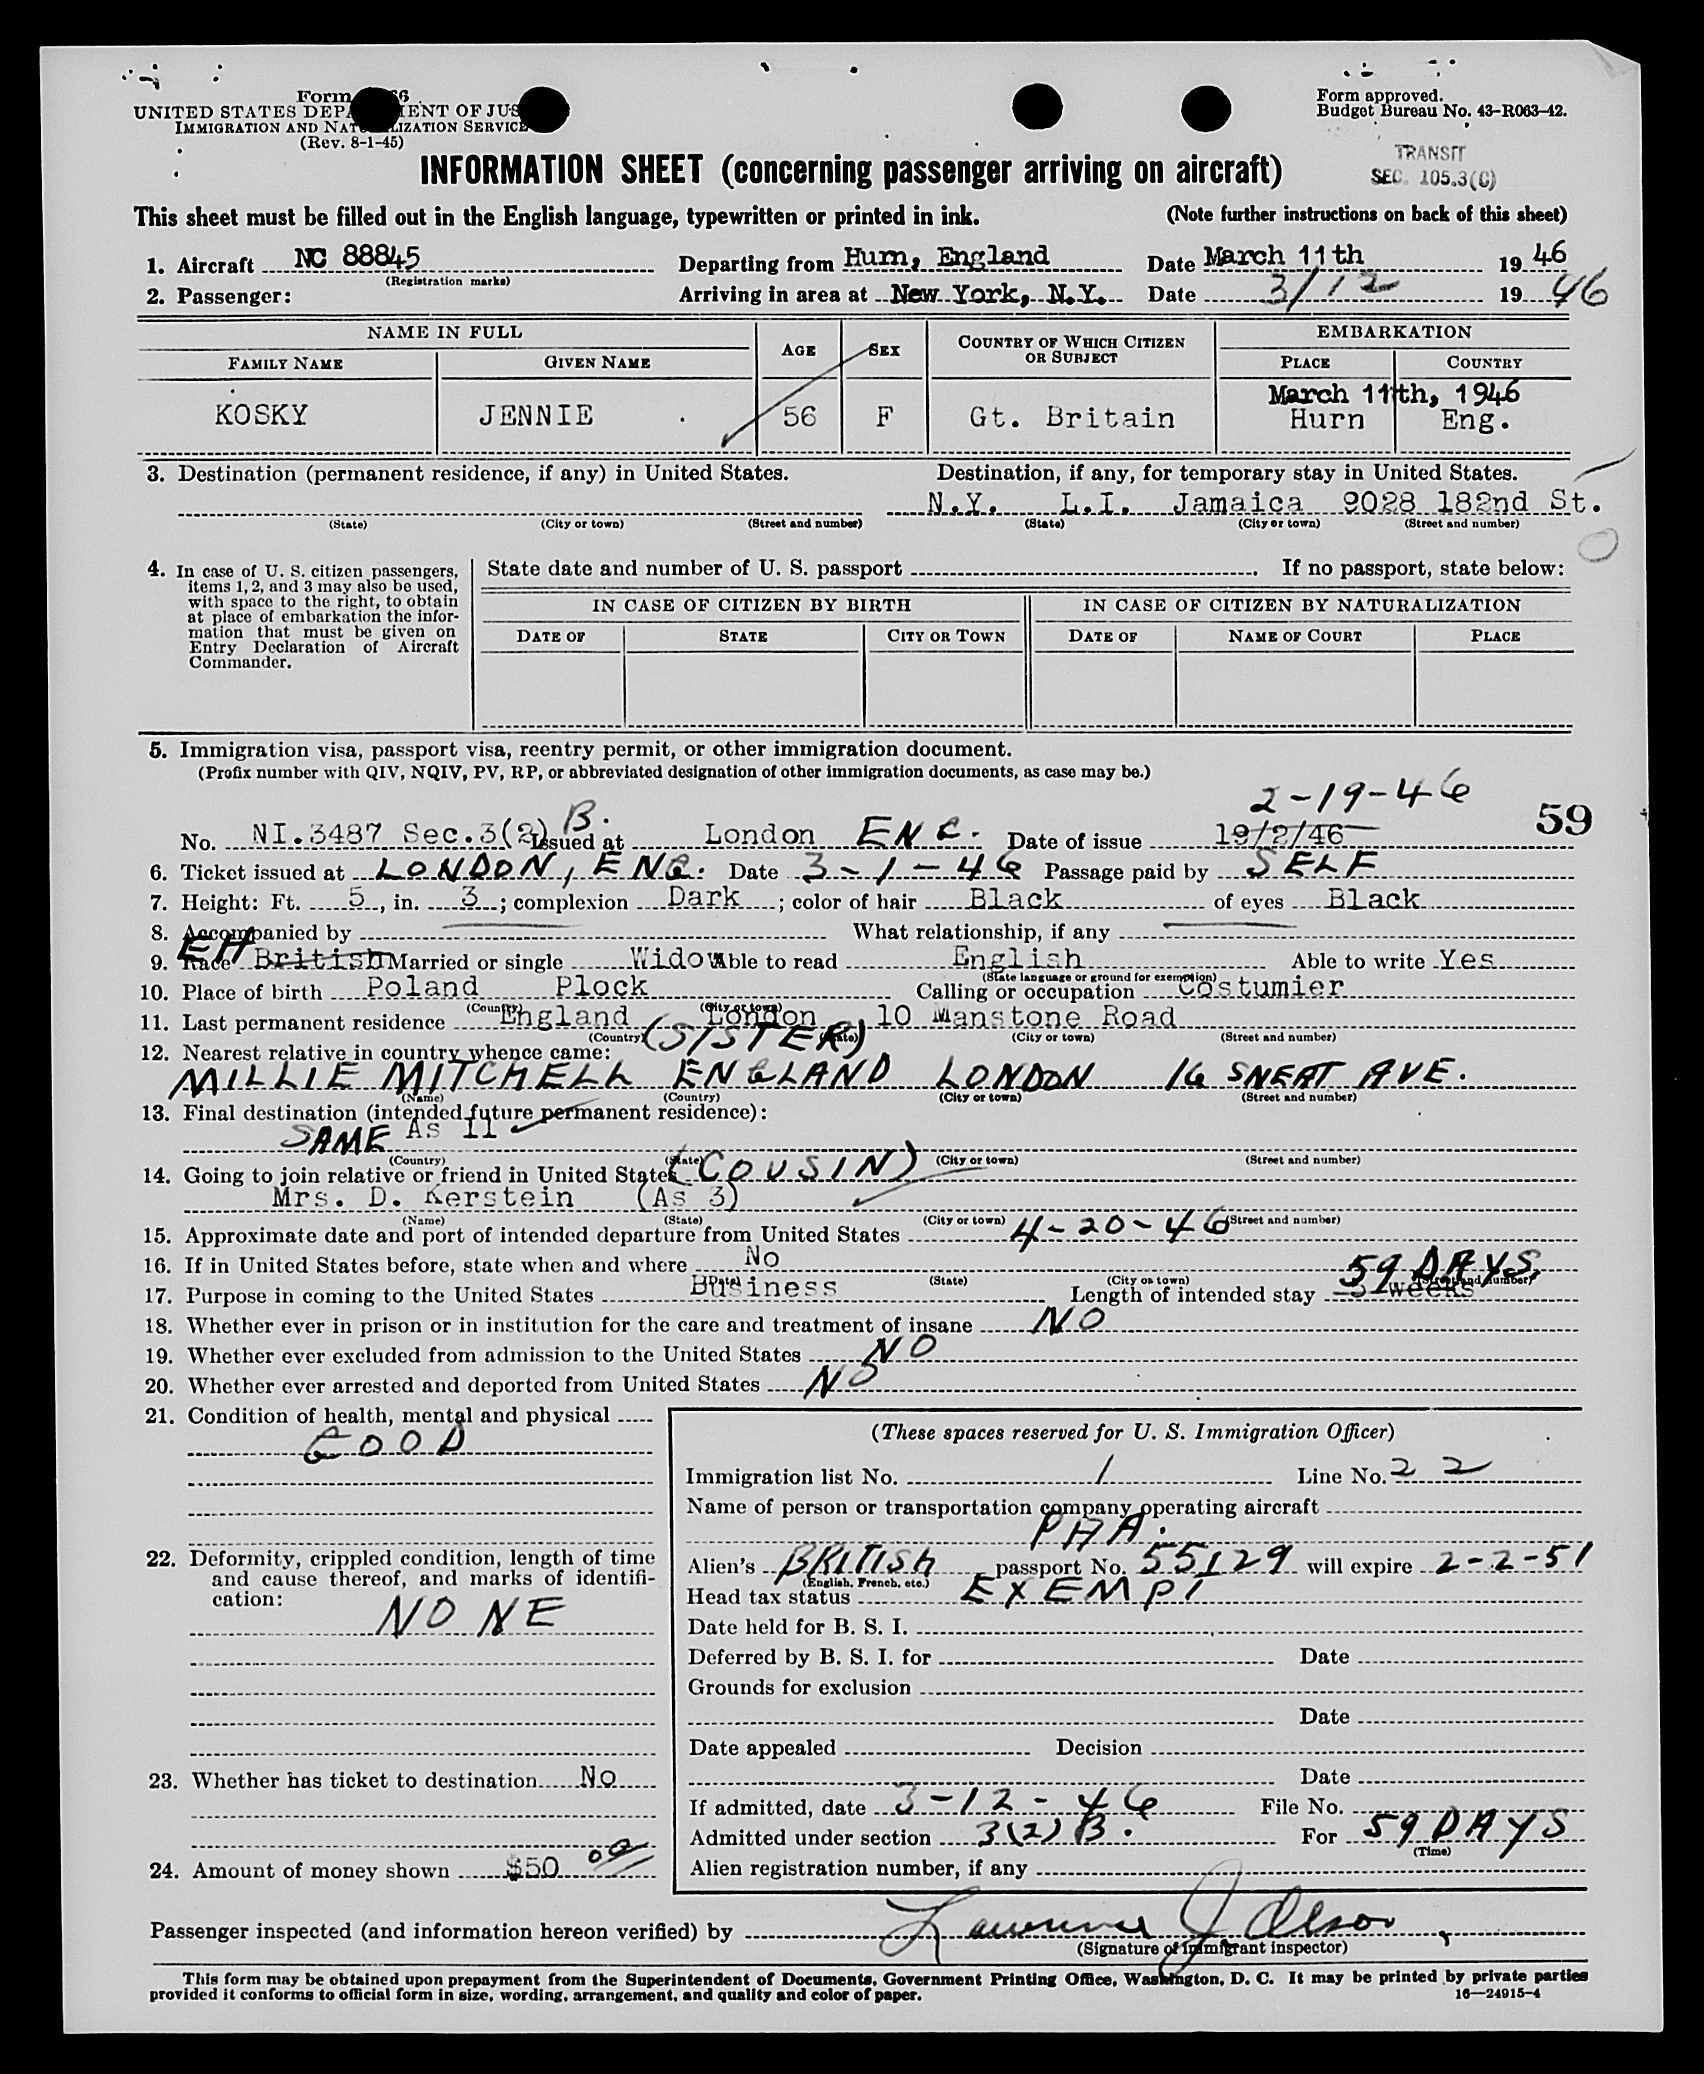 Form 66
UNITED STATES DEP MENT OF JUS
IMMIGRATION AND NAT LIZATION SERVICE
(Rev. 8-1-45)
Form approved.
Budget Bureau No. 43-R063-42.
TRANSIT
SEC. 105.3(C)
INFORMATION SHEET (concerning passenger arriving on aircraft)
This sheet must be filled out in the English language, typewritten or printed in ink. (Note further instructions on back of this sheet)
1. Aircraft NC 88845 Departing from Hurn, England Date March 11th 19 46
(Registration marks)
2. Passenger: Arriving in area at New York, N.Y. Date 3/12 19 46
NAME IN FULL AGE SEX COUNTRY OF WHICH CITIZEN OR SUBJECT EMBARKATION
FAMILY NAME GIVEN NAME PLACE COUNTRY
March 11th, 1946
KOSKY JENNIE . 56 F Gt. Britain Hurn Eng.
3. Destination (permanent residence, if any) in United States. Destination, if any, for temporary stay in United States.
N.Y. L.I. Jamaica 9028 182nd St.
(State) (City or town) (Street and number) (State) (City or town) (Street and number)
4. In case of U. S. citizen passengers, items 1, 2, and 3 may also be used, with space to the right, to obtain at place of embarkation the information that must be given on Entry Declaration of Aircraft Commander.
State date and number of U. S. passport . If no passport, state below:
IN CASE OF CITIZEN BY BIRTH IN CASE OF CITIZEN BY NATURALIZATION
DATE OF STATE CITY OR TOWN DATE OF NAME OF COURT PLACE
5. Immigration visa, passport visa, reentry permit, or other immigration document.
(Prefix number with QIV, NQIV, PV, RP, or abbreviated designation of other immigration documents, as case may be.)
2-19-46
59
No. NI.3487 Sec.3(2) B. Issued at London ENG. Date of issue 19/2/46
6. Ticket issued at LONDON, ENG. Date 3-1-46 Passage paid by SELF
7. Height: Ft. 5, in. 3; complexion Dark; color of hair Black of eyes Black
8. Accompanied by What relationship, if any
9. Race EH British Married or single Widow Able to read English Able to write Yes
(State language or ground for exemption)
10. Place of birth Poland Plock Calling or occupation Costumier
(Country) (City or town)
11. Last permanent residence England London 10 Manstone Road
(Country) (State) (City or town) (Street and number)
12. Nearest relative in country whence came: (SISTER)
MILLIE MITCHELL ENGLAND LONDON 16 SNEAT AVE.
(Name) (Country) (City or town) (Street and number)
13. Final destination (intended future permanent residence):
SAME As 11
(Country) (State) (City or town) (Street and number)
14. Going to join relative or friend in United States (COUSIN)
Mrs. D. Kerstein (As 3)
(Name) (State) (City or town) (Street and number)
15. Approximate date and port of intended departure from United States 4-20-46
16. If in United States before, state when and where No
(Date) (State) (City or town) (Street and number)
59 DAYS
17. Purpose in coming to the United States Business Length of intended stay weeks
18. Whether ever in prison or in institution for the care and treatment of insane NO
19. Whether ever excluded from admission to the United States NO
20. Whether ever arrested and deported from United States NO
21. Condition of health, mental and physical
GOOD
22. Deformity, crippled condition, length of time and cause thereof, and marks of identification:
NONE
23. Whether has ticket to destination No
24. Amount of money shown $50 00
(These spaces reserved for U. S. Immigration Officer)
Immigration list No. 1 Line No. 22
Name of person or transportation company operating aircraft
PAA.
Alien's BRITISH passport No. 55129 will expire 2-2-51
(English, French, etc.)
Head tax status EXEMPT
Date held for B. S. I.
Deferred by B. S. I. for Date
Grounds for exclusion
Date
Date appealed Decision
Date
If admitted, date 3-12-46 File No.
Admitted under section 3(2)B. For 59 DAYS
(Time)
Alien registration number, if any
Passenger inspected (and information hereon verified) by Lawrence J Olson
(Signature of immigrant inspector)
This form may be obtained upon prepayment from the Superintendent of Documents, Government Printing Office, Washington, D. C. It may be printed by private parties
provided it conforms to official form in size, wording, arrangement, and quality and color of paper. 16—24915-4